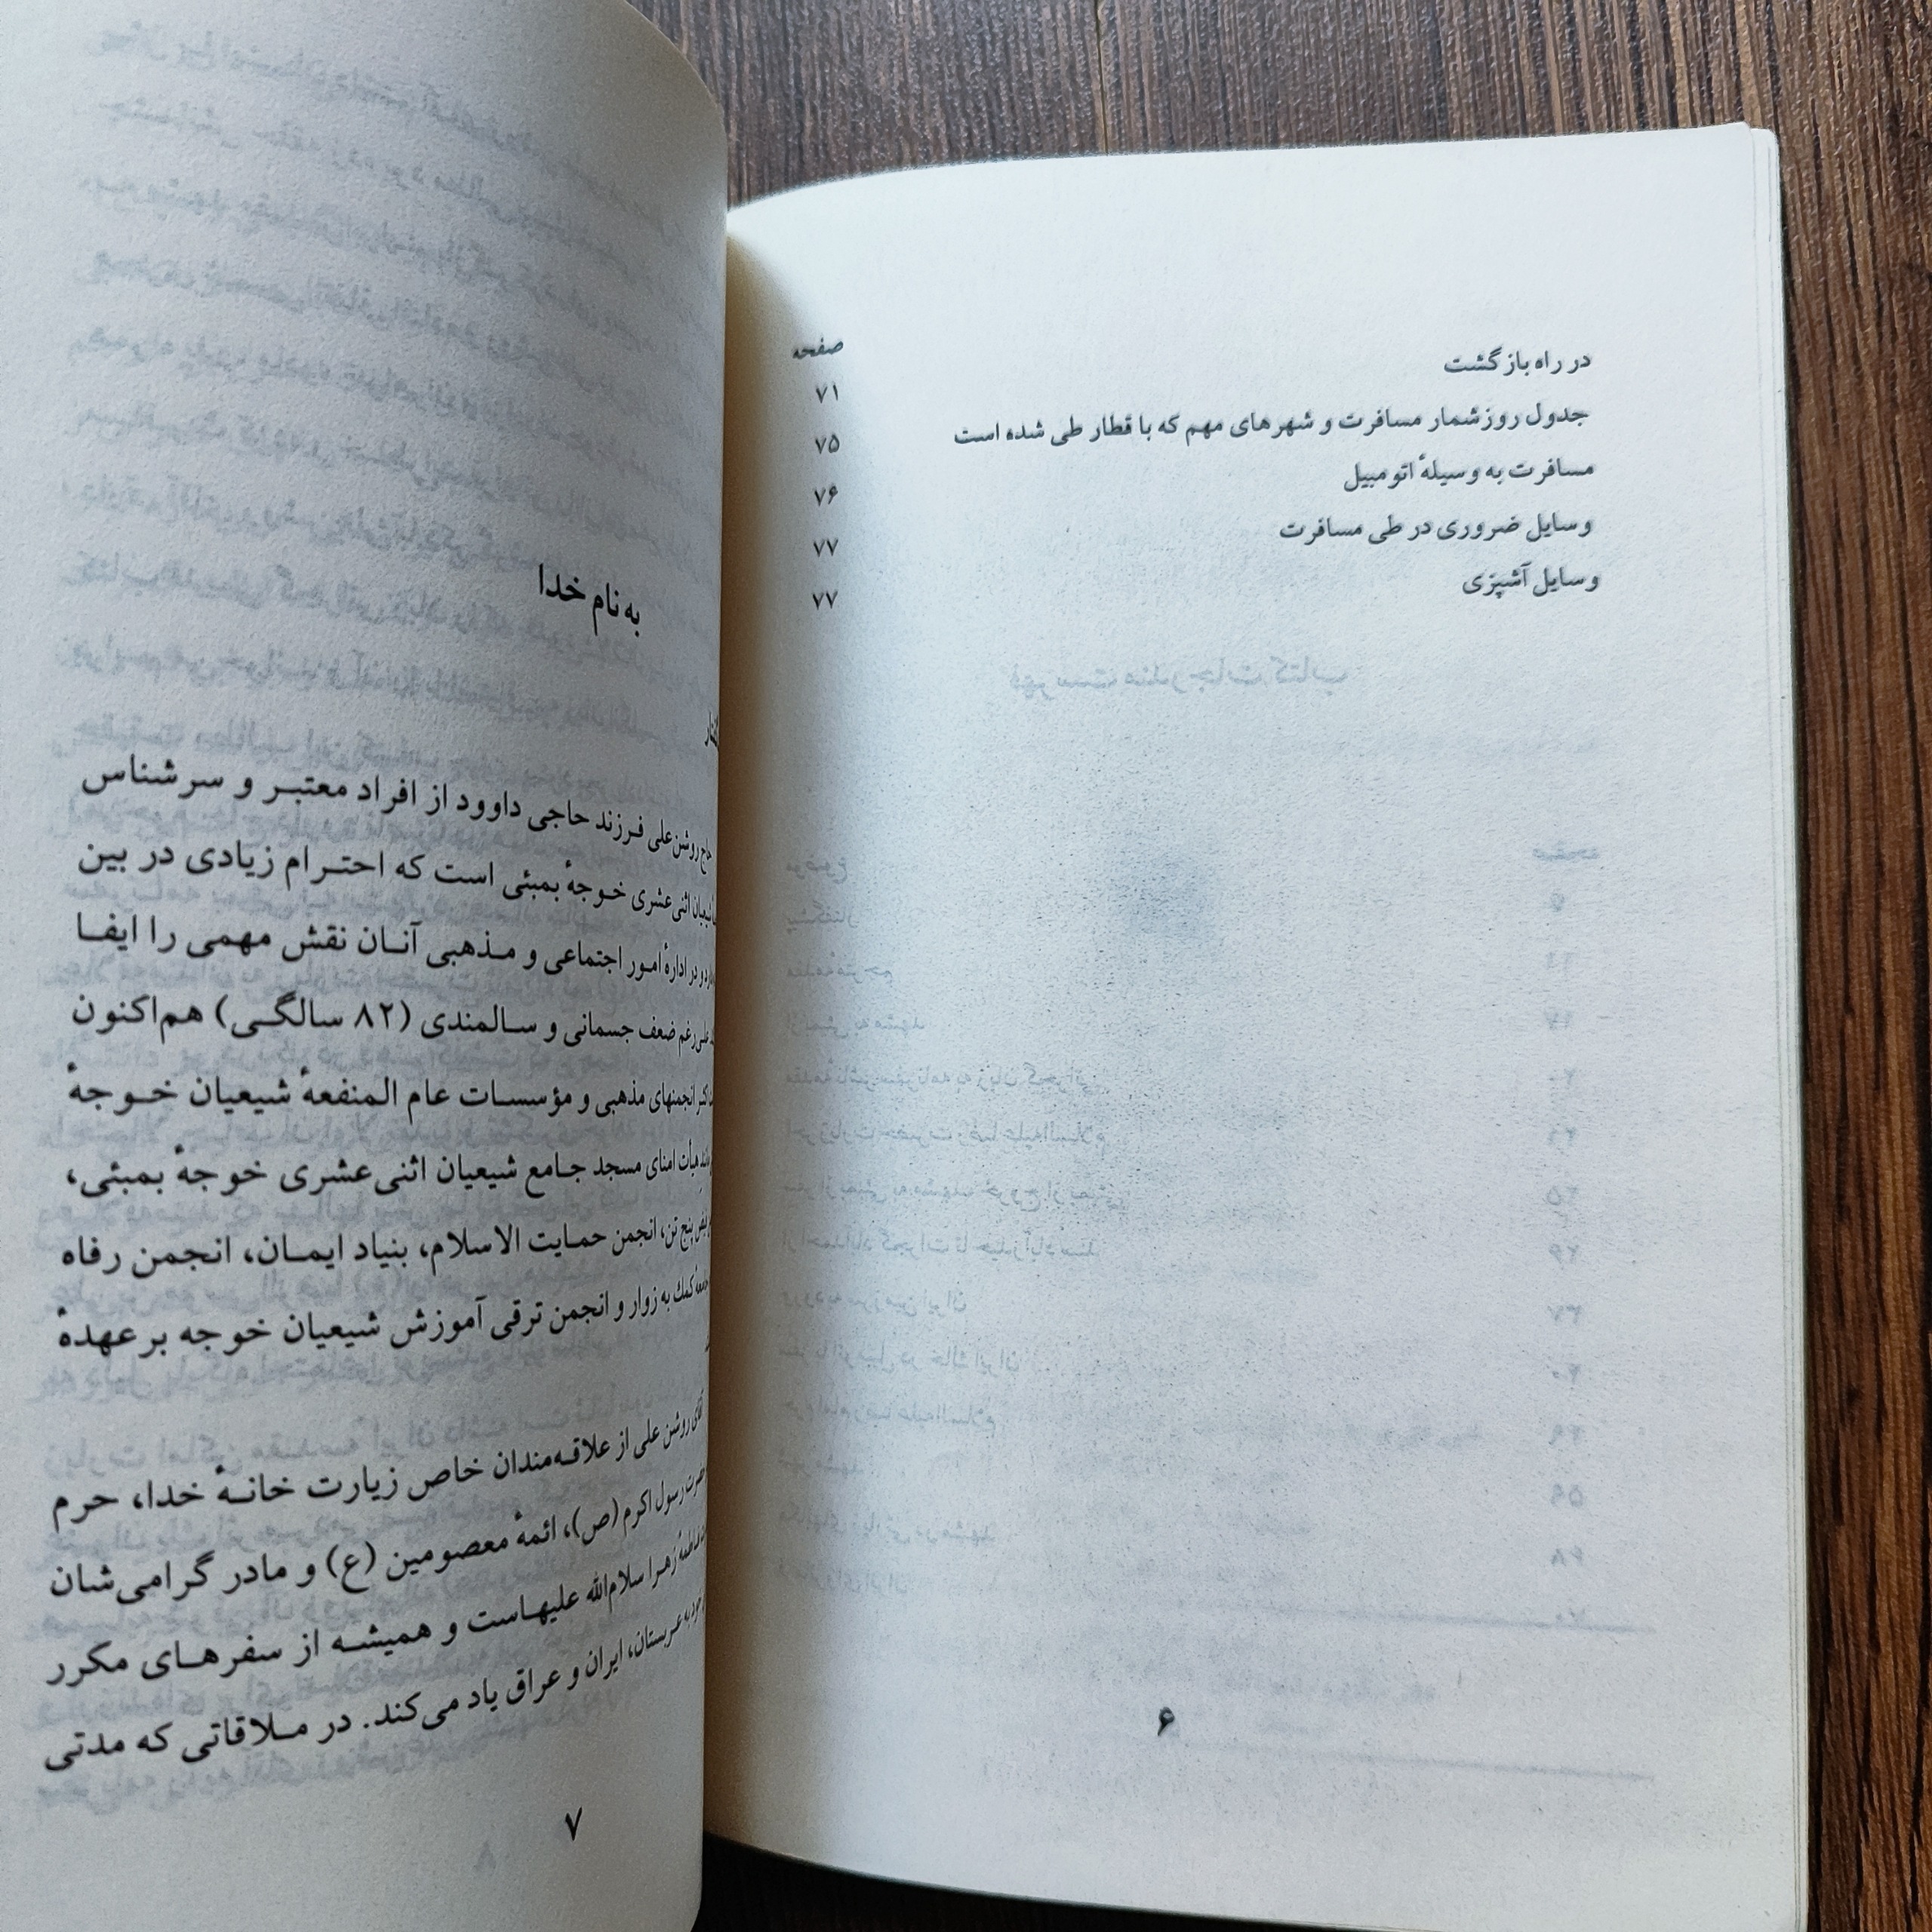 صفحه
در راه بازگشت ۷۱
جدول روزشمار مسافرت و شهرهای مهم که با قطار طی شده است ۷۵
مسافرت به وسیلهٔ اتومبیل ۷۶
وسایل ضروری در طی مسافرت ۷۷
وسایل آشپزی ۷۷
۶
به نام خدا
حاج روشن‌علی فرزند حاجی داوود از افراد معتبر و سرشناس
شیعیان اثنی‌عشری خوجهٔ بمبئی است که احترام زیادی در بین
دارد و در ادارهٔ امور اجتماعی و مذهبی آنان نقش مهمی را ایفا
علی‌رغم ضعف جسمانی و سالمندی (۸۲ سالگی) هم‌اکنون
انجمنهای مذهبی و مؤسسات عام المنفعهٔ شیعیان خوجهٔ
هیأت امنای مسجد جامع شیعیان اثنی‌عشری خوجهٔ بمبئی،
فیض پنج تن، انجمن حمایت الاسلام، بنیاد ایمان، انجمن رفاه
کمک به زوار و انجمن ترقی آموزش شیعیان خوجه بر عهدهٔ
آقای روشن علی از علاقه‌مندان خاص زیارت خانهٔ خدا، حرم
حضرت رسول اکرم (ص)، ائمهٔ معصومین (ع) و مادر گرامی‌شان
فاطمهٔ زهرا سلام‌الله علیهاست و همیشه از سفرهای مکرر
خود به عربستان، ایران و عراق یاد می‌کند. در ملاقاتی که مدتی
۷